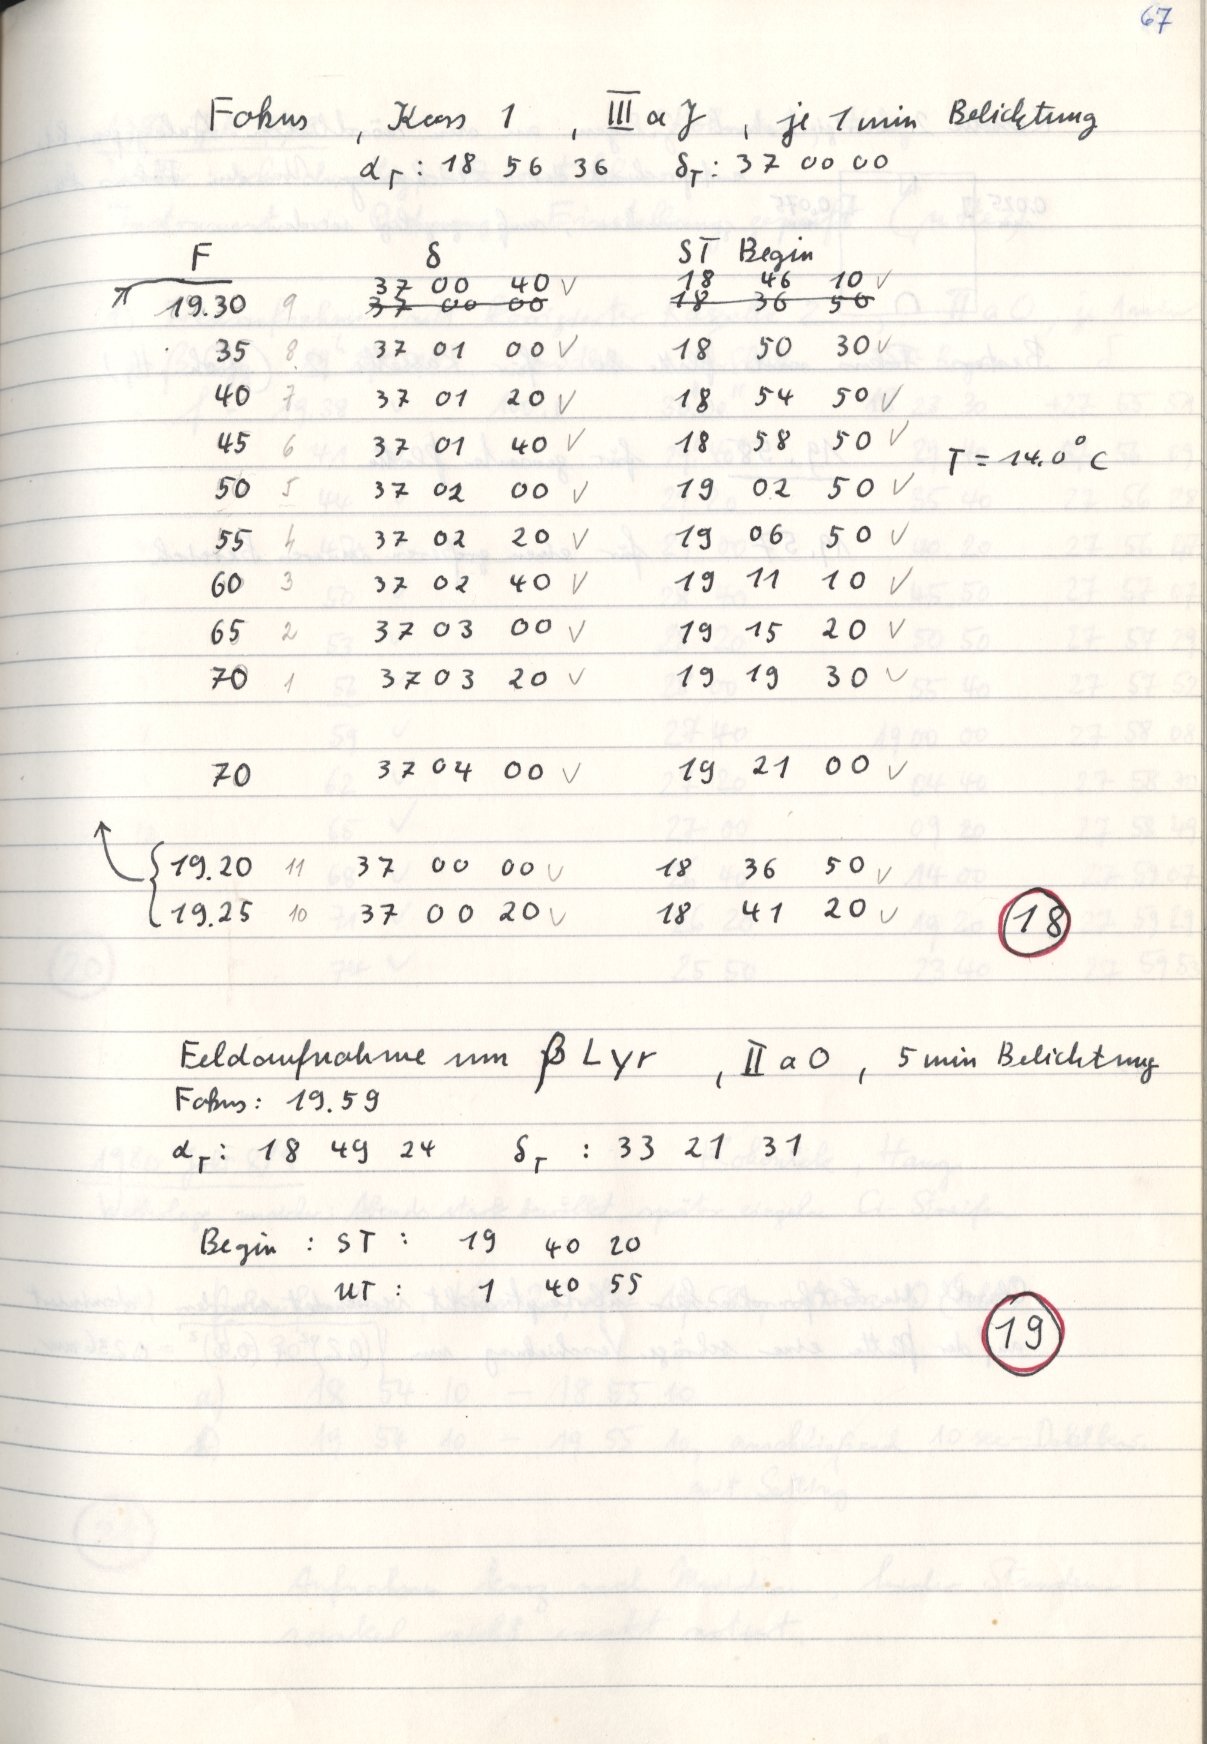 67
Fokus , Kass 1 , III a J , je 1 min Belichtung
α_T : 18 56 36 δ_T : 37 00 00
F δ ST Begin
37 00 40 ✓ 18 46 10 ✓
19.30 9 37 00 00 18 36 50
35 8 37 01 00 ✓ 18 50 30 ✓
40 7 37 01 20 ✓ 18 54 50 ✓
45 6 37 01 40 ✓ 18 58 50 ✓
T = 14.0° C
50 5 37 02 00 ✓ 19 02 50 ✓
55 4 37 02 20 ✓ 19 06 50 ✓
60 3 37 02 40 ✓ 19 11 10 ✓
65 2 37 03 00 ✓ 19 15 20 ✓
70 1 37 03 20 ✓ 19 19 30 ✓
70 37 04 00 ✓ 19 21 00 ✓
19.20 11 37 00 00 ✓ 18 36 50 ✓
19.25 10 37 00 20 ✓ 18 41 20 ✓
18
Feldaufnahme um β Lyr , II a O , 5 min Belichtung
Fokus : 19.59
α_T : 18 49 24 δ_T : 33 21 31
Begin : ST : 19 40 20
UT : 1 40 55
19